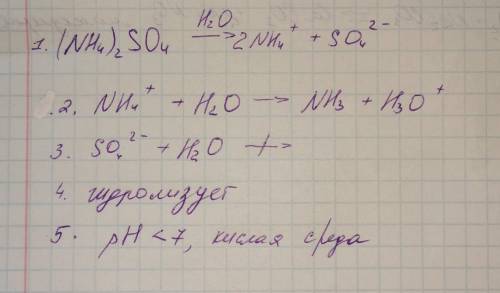 1. (NH₄)₂SO₄ —H₂O→ 2NH₄⁺ + SO₄²⁻
.2. NH₄⁺ + H₂O → NH₃ + H₃O⁺
3. SO₄²⁻ + H₂O ⇸
4. гидролизует
5. pH < 7, кислая среда